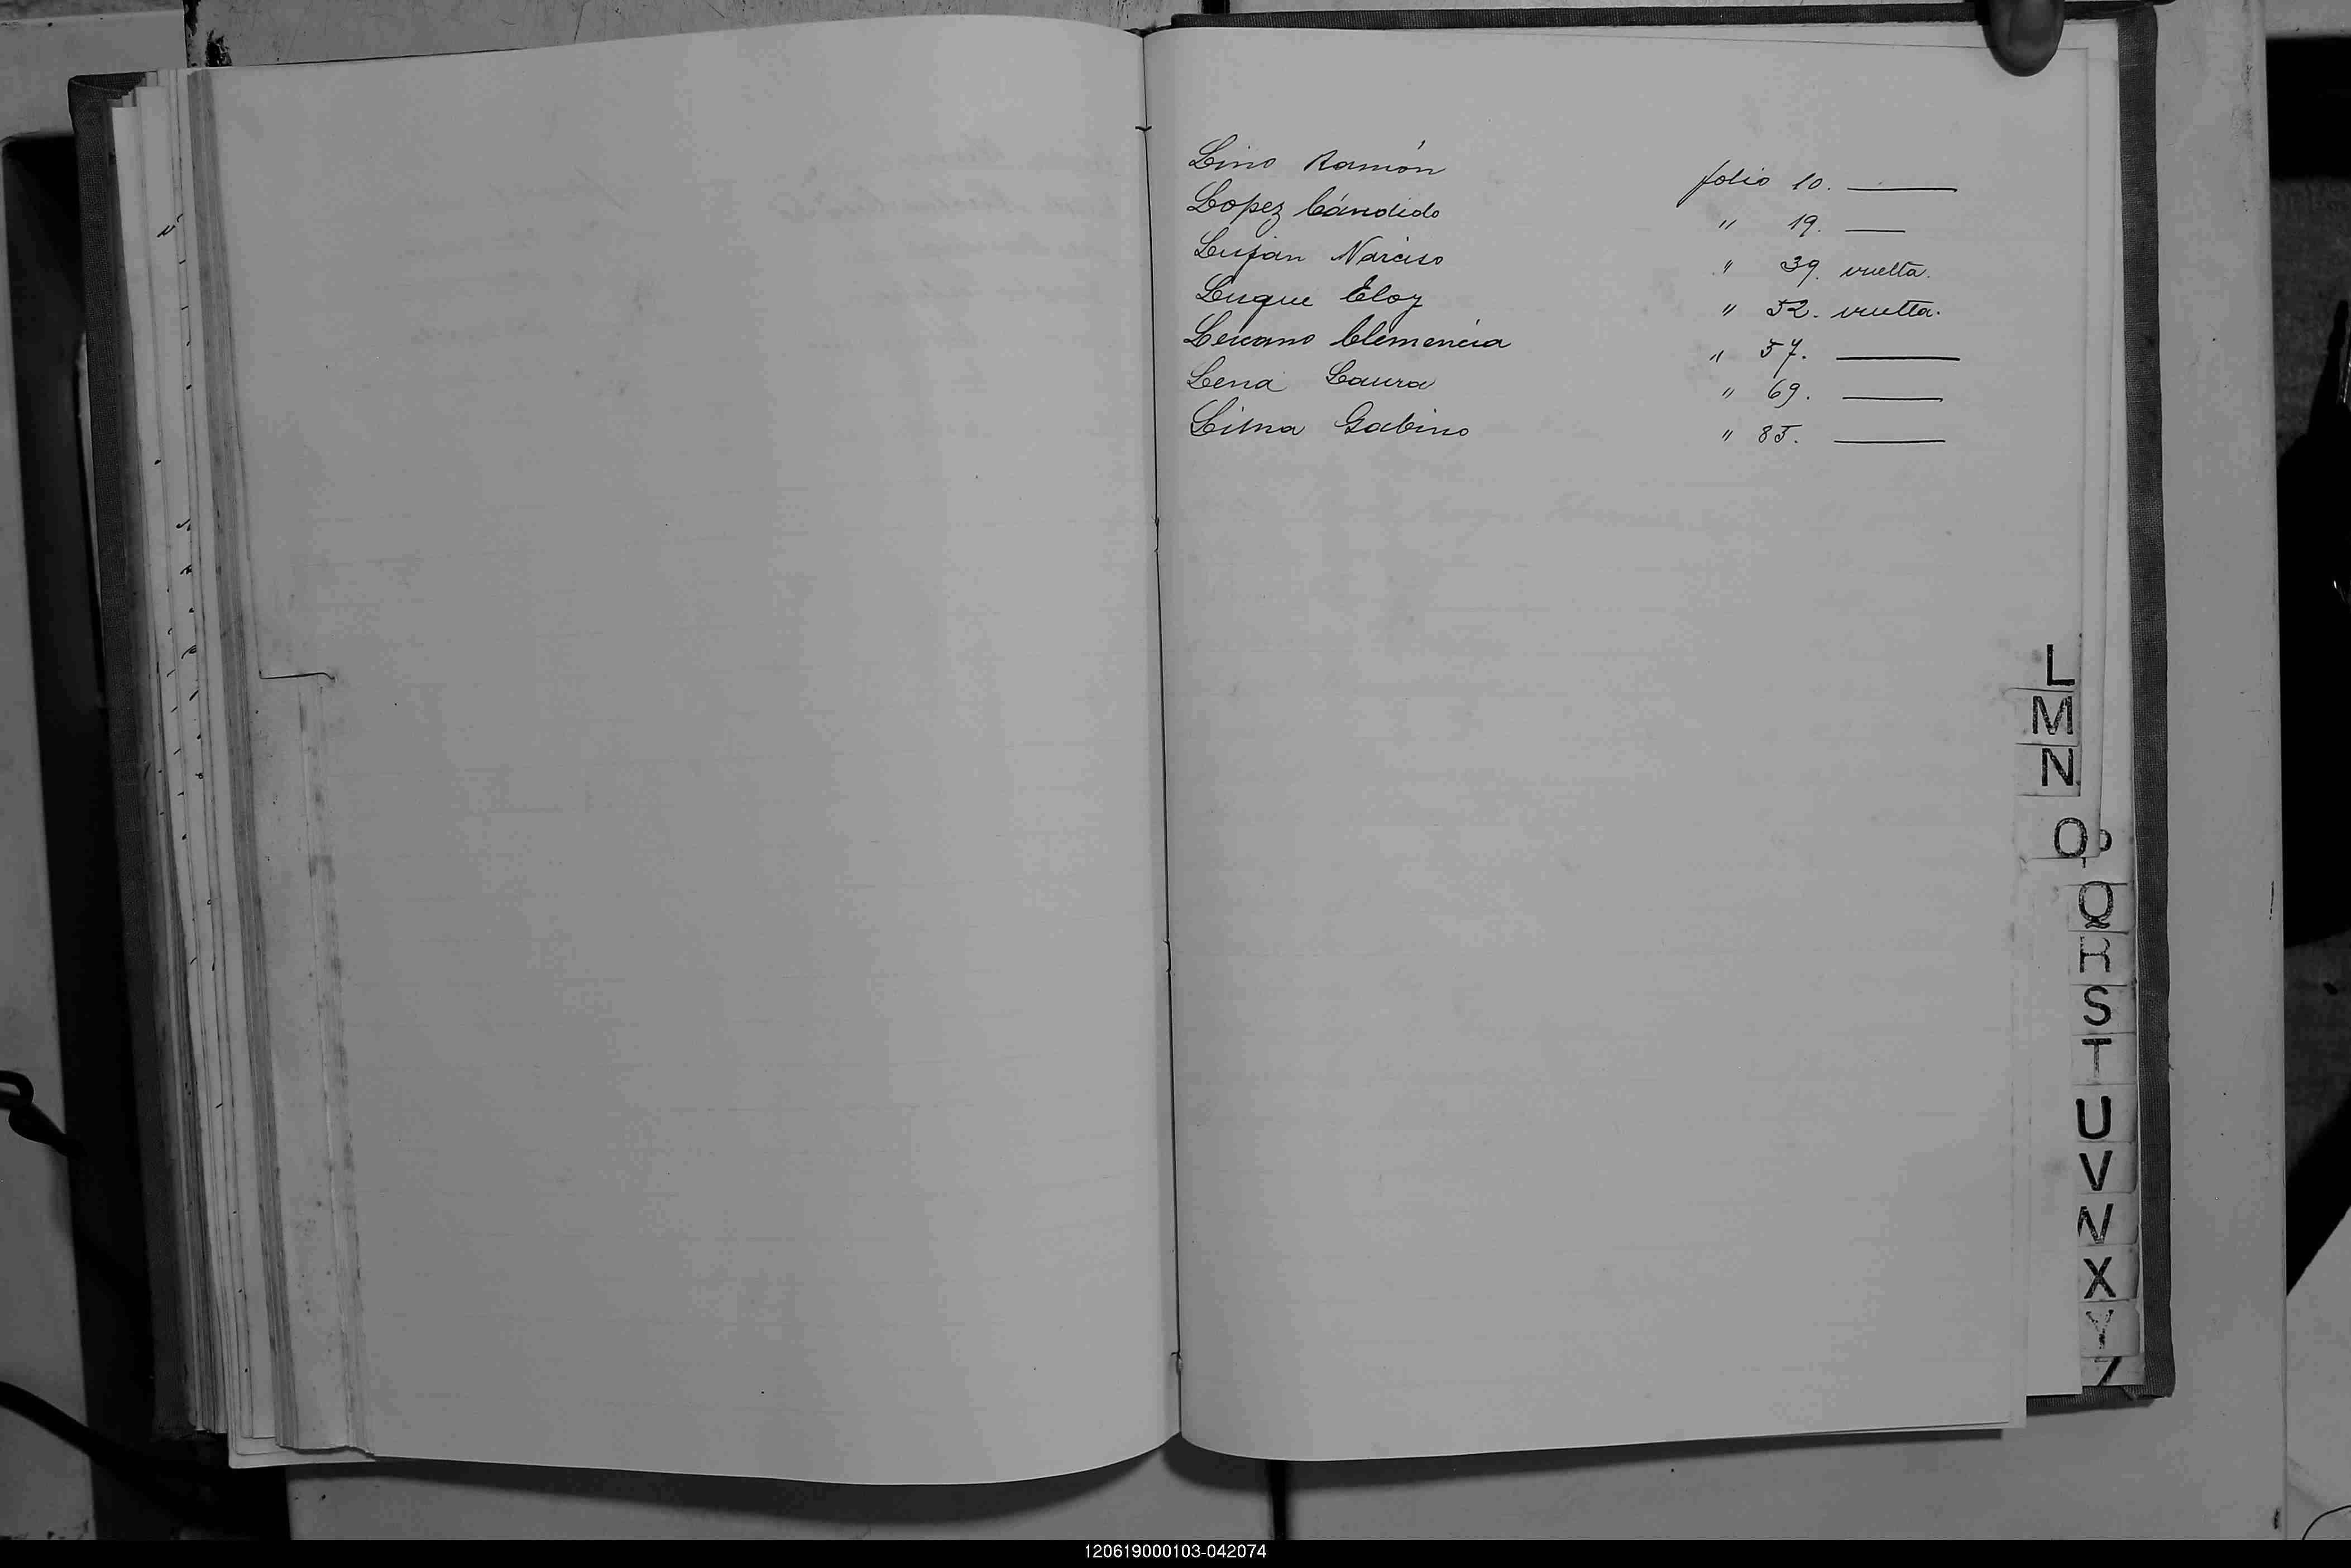 Lino Ramón folio 10. ———
Lopez Cándido " 19. ——
Lujan Narciso " 39. vuelta.
Luque Eloy " 52. vuelta.
Lescano Clemencia " 57. ———
Lena Laura " 69. ———
Lima Gabino " 85. ———
L
M
N
O
P
Q
R
S
T
U
V
X
Y
Z
120619000103-042074